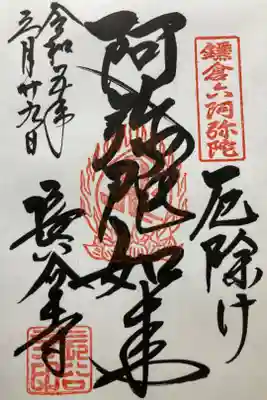 鎌倉六阿弥陀
厄除け
阿弥陀如来
長谷寺
令和五年
三月廿九日